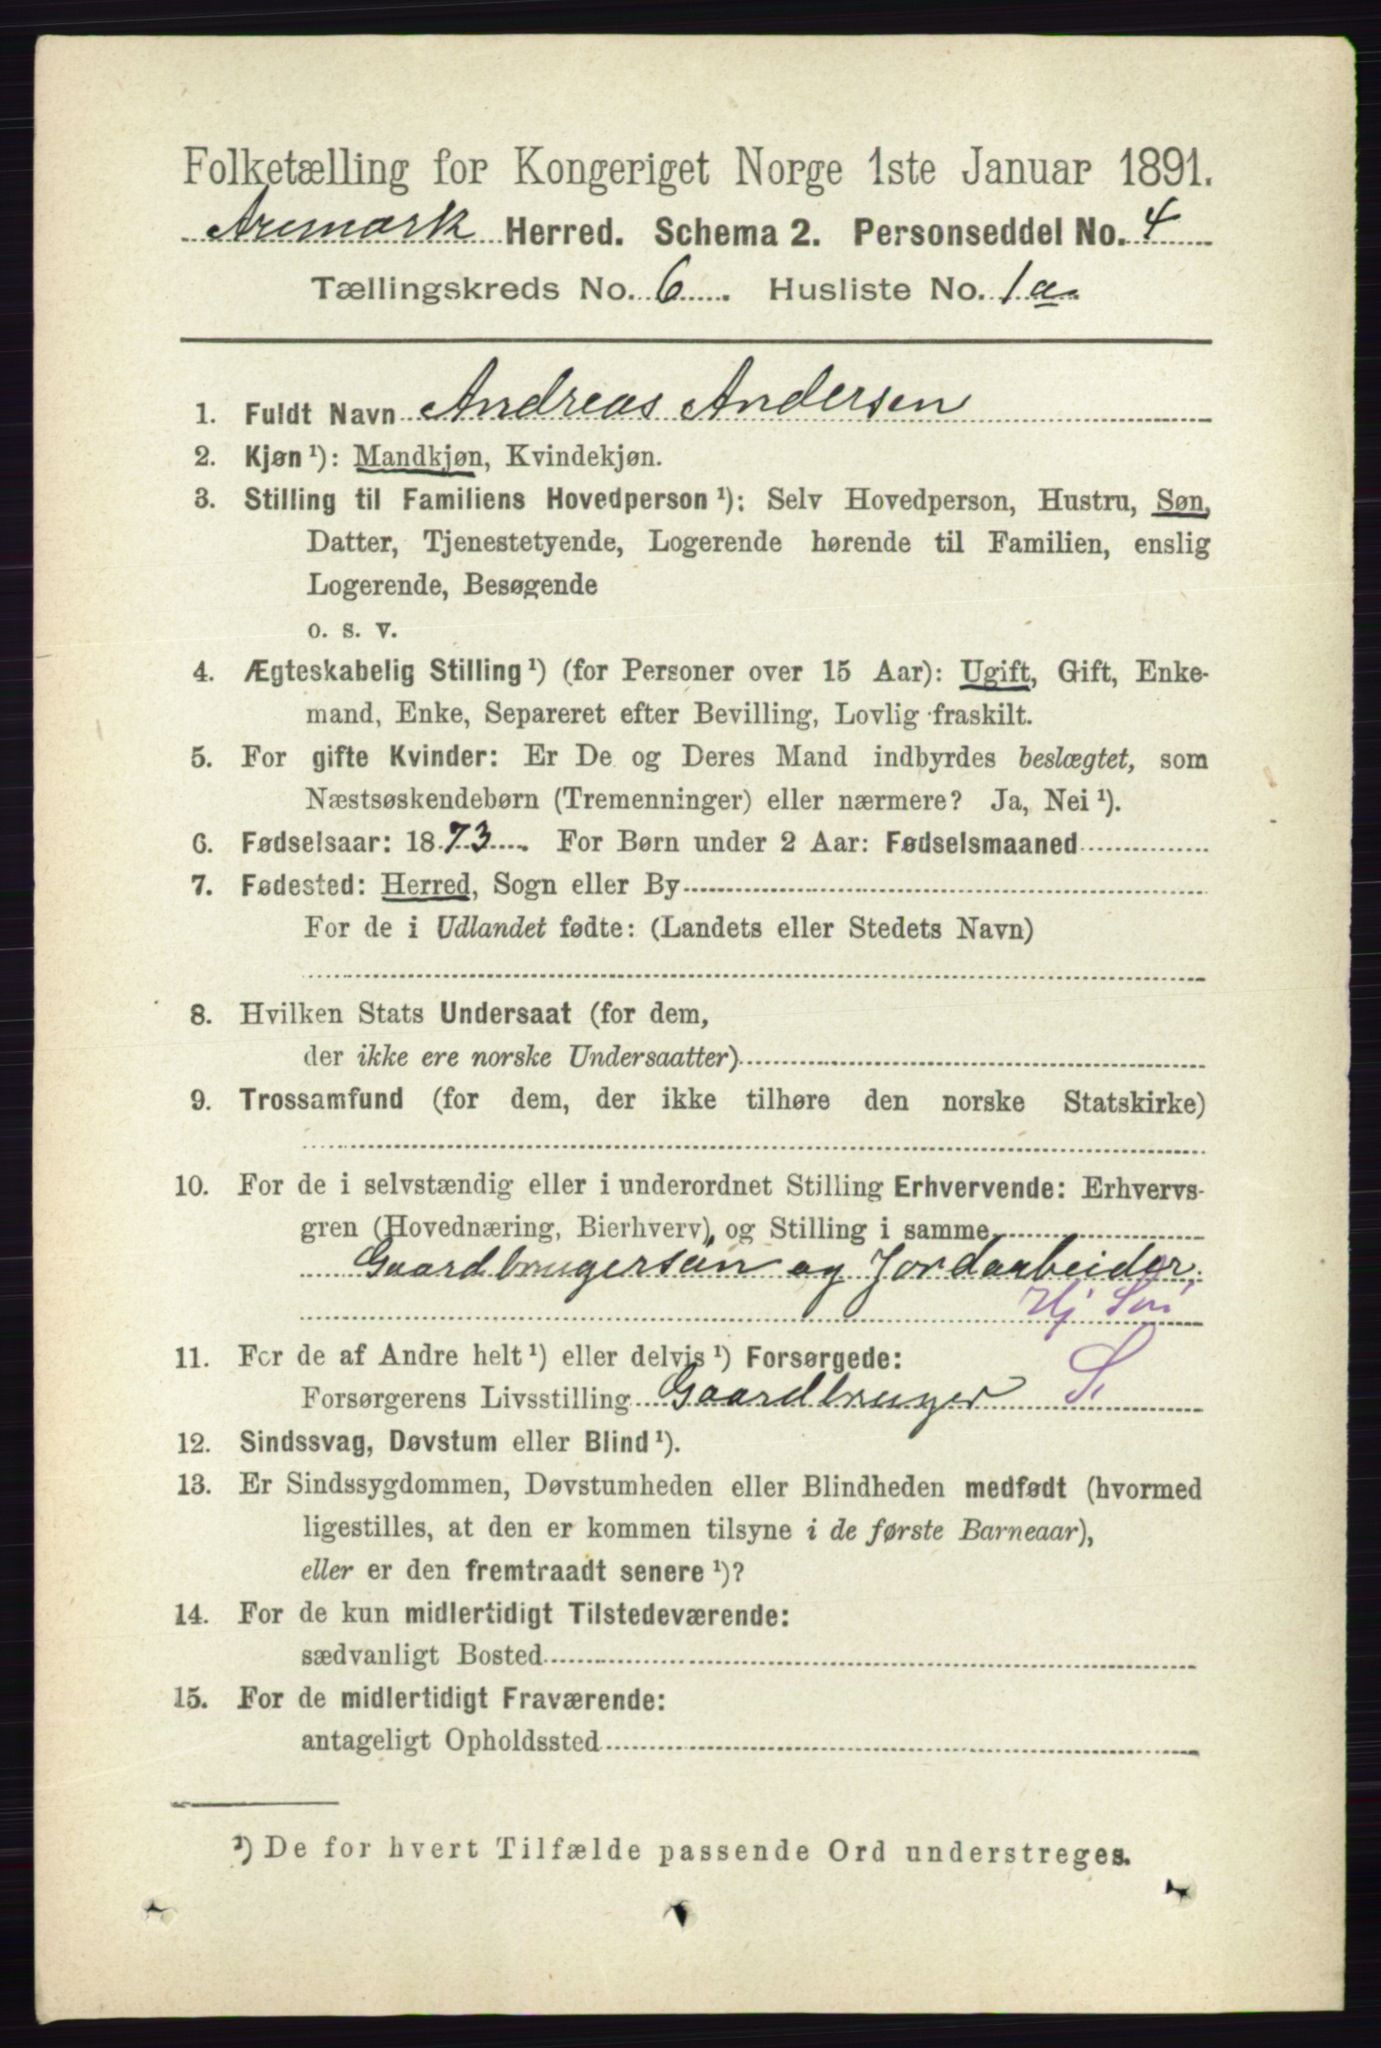 Folketælling for Kongeriget Norge 1ste Januar 1891.
Aremark Herred. Schema 2. Personseddel No. 4
Tællingskreds No. 6 Husliste No. 1a
1. Fuldt Navn Andreas Andersen
2. Kjøn ¹): Mandkjøn, Kvindekjøn.
3. Stilling til Familiens Hovedperson ¹): Selv Hovedperson, Hustru, Søn,
Datter, Tjenestetyende, Logerende hørende til Familien, enslig
Logerende, Besøgende
o. s. v.
4. Ægteskabelig Stilling ¹) (for Personer over 15 Aar): Ugift, Gift, Enke-
mand, Enke, Separeret efter Bevilling, Lovlig fraskilt.
5. For gifte Kvinder: Er De og Deres Mand indbyrdes beslægtet, som
Næstsøskendebørn (Tremenninger) eller nærmere? Ja, Nei ¹).
6. Fødselsaar: 1873. For Børn under 2 Aar: Fødselsmaaned
7. Fødested: Herred, Sogn eller By
For de i Udlandet fødte: (Landets eller Stedets Navn)
8. Hvilken Stats Undersaat (for dem,
der ikke ere norske Undersaatter)
9. Trossamfund (for dem, der ikke tilhøre den norske Statskirke)
10. For de i selvstændig eller i underordnet Stilling Erhvervende: Erhvervs-
gren (Hovednæring, Bierhverv), og Stilling i samme
Gaardbrugersøn og Jordarbeider.
Hj Søn
11. For de af Andre helt ¹) eller delvis ¹) Forsørgede:
Forsørgerens Livsstilling Gaardbruger S.
12. Sindssvag, Døvstum eller Blind ¹).
13. Er Sindssygdommen, Døvstumheden eller Blindheden medfødt (hvormed
ligestilles, at den er kommen tilsyne i de første Barneaar),
eller er den fremtraadt senere ¹)?
14. For de kun midlertidigt Tilstedeværende:
sædvanligt Bosted
15. For de midlertidigt Fraværende:
antageligt Opholdssted
¹) De for hvert Tilfælde passende Ord understreges.